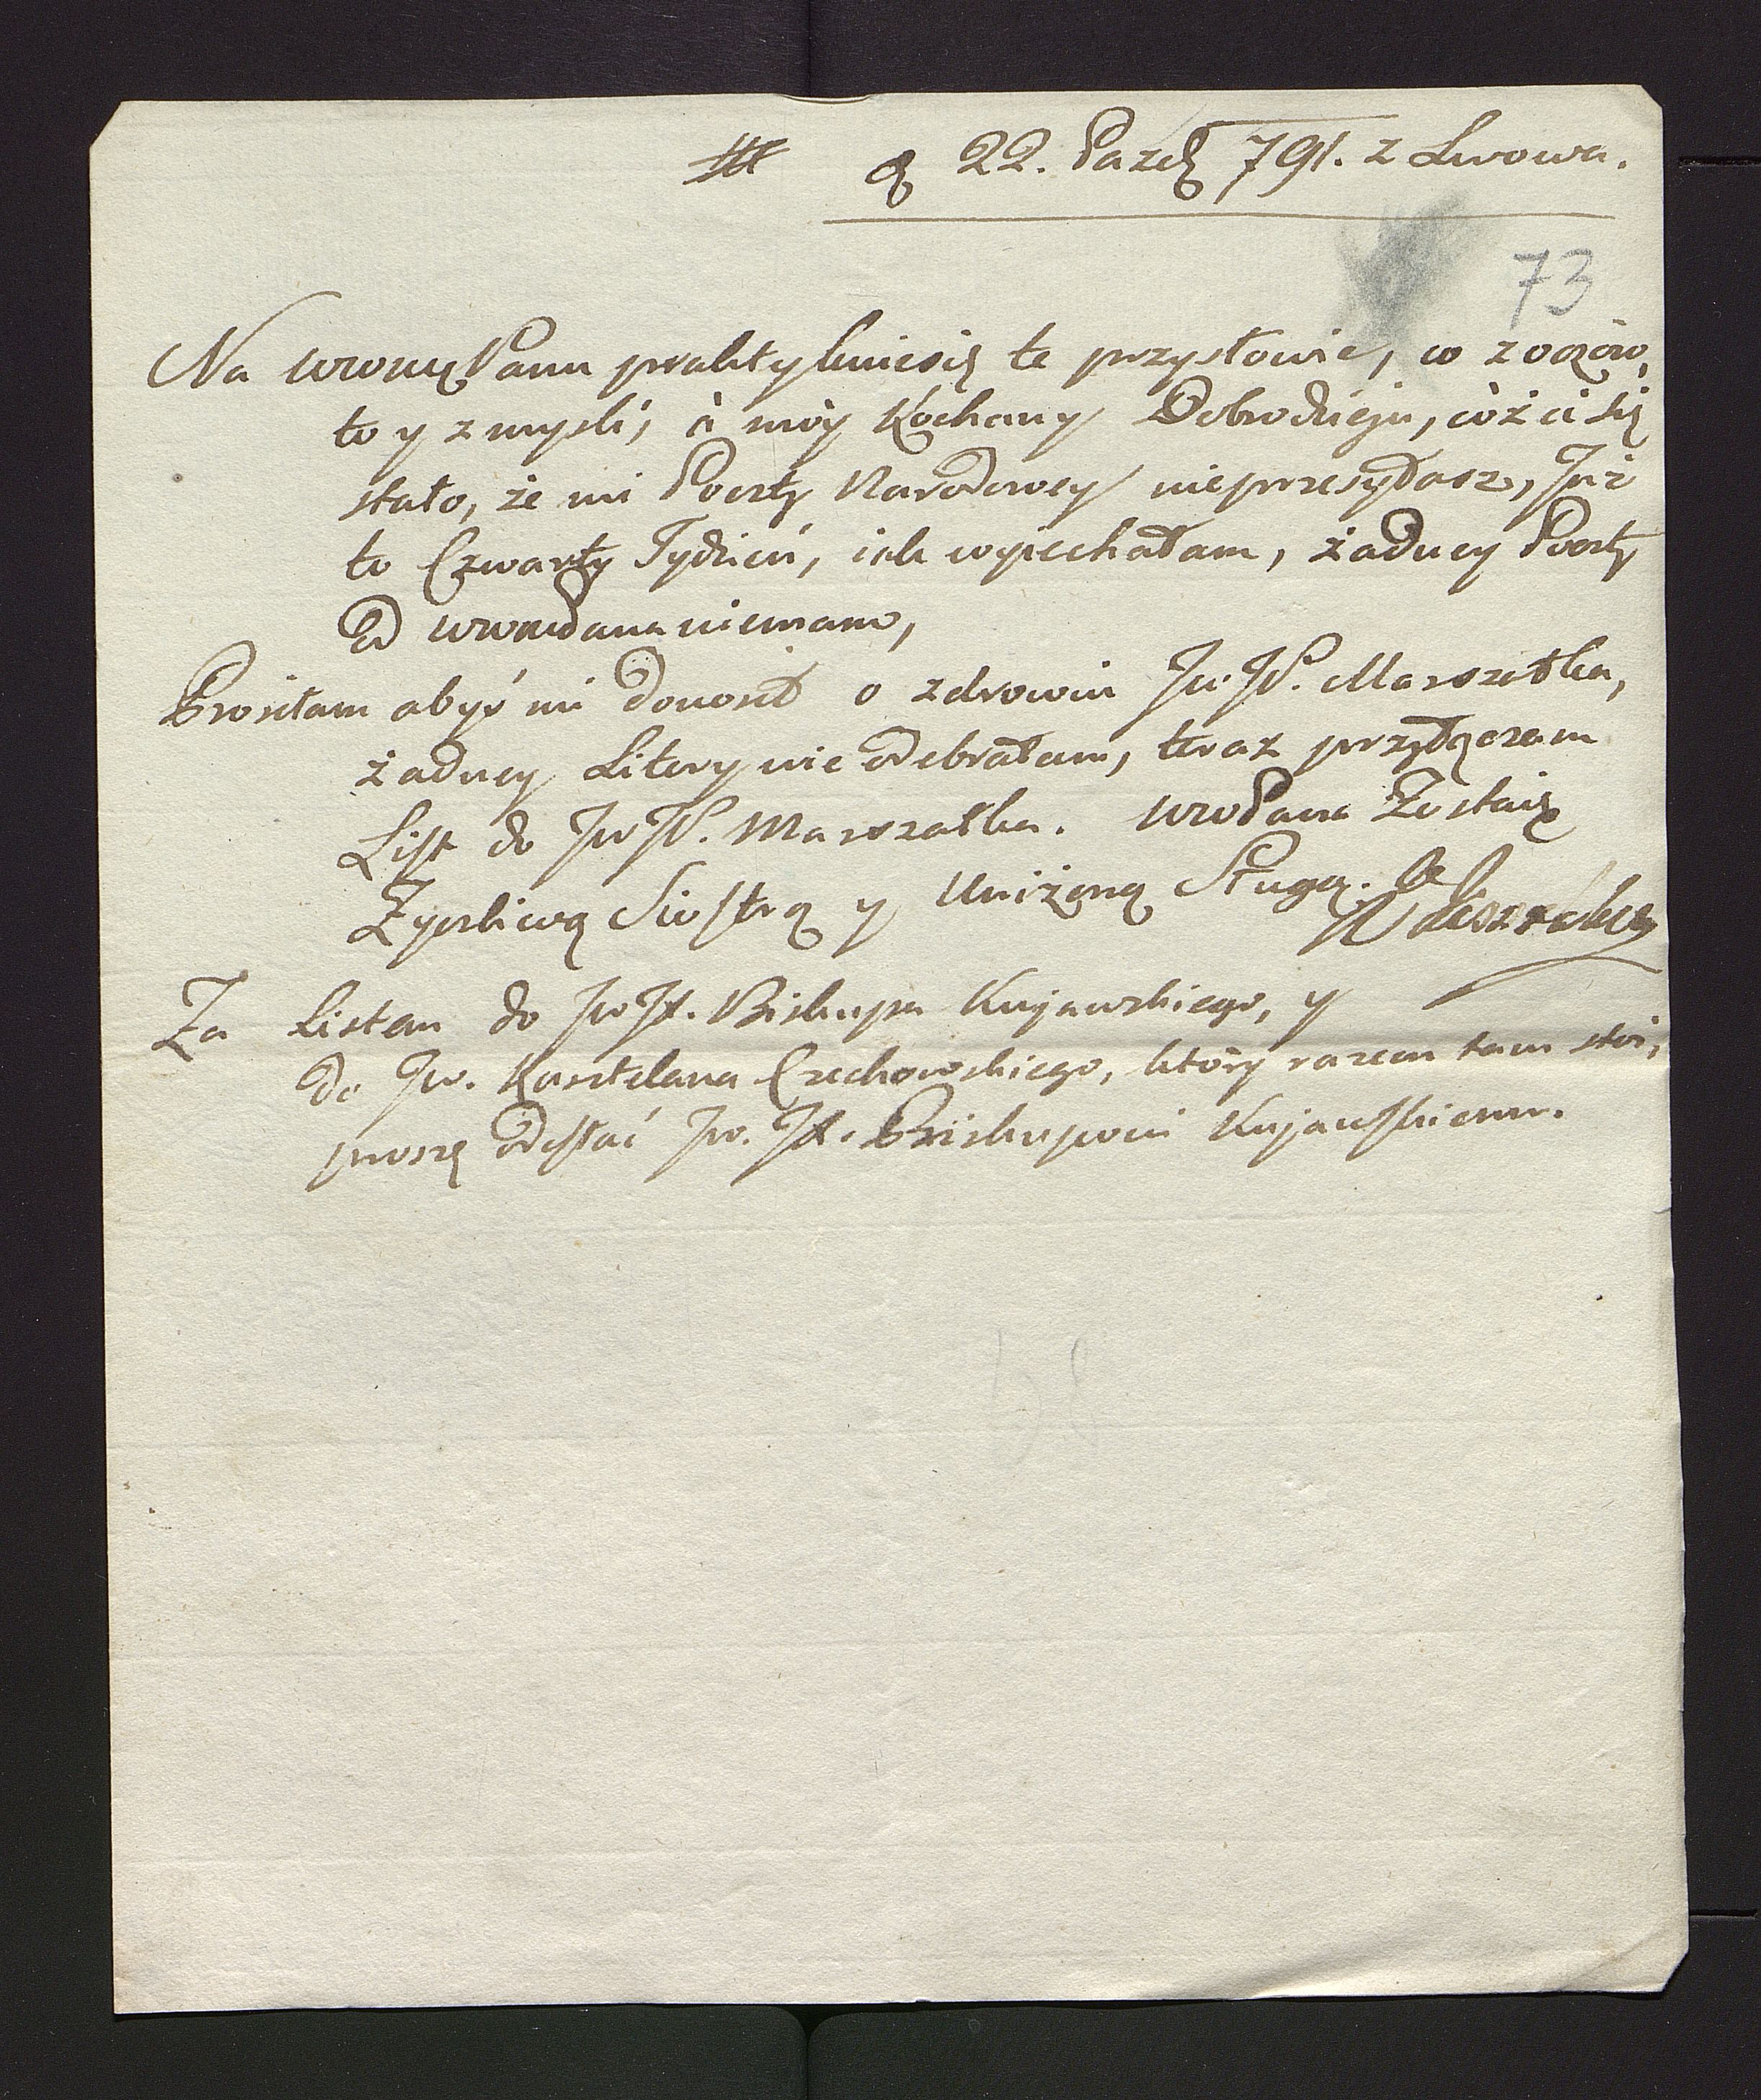 d 22. Pazd 791. z Lwowa.
73
Na wwmPanu praktykuiesię te przysłowie, co z oczów,
to y z mysli, à móy Kochany Dobrodzieju, cóż ci się
stało, że mi Poczty Narodowey nieprzesyłasz, Już
to Czwarty Tydzień, iak wyiechałam, żadney Poczty
Od wwmPana niemam,
Prosiłam abyś mi donosił o zdrowiu Jw. JP. Marszałka,
żadney Litery nie Odebrałam, teraz przyłączam
List do Jw JP. Marszałka. wwPana Zostaię
Zyczliwą Siostrą y Uniżoną Sługą.
Za Listem do Jw JX. Biskupa Kujawskiego, y
do Jw. Kasztelana Czechowskiego, który razem tam stoi,
proszę Odesłać Jw. JX. Biskupowi Kujawskiemu.